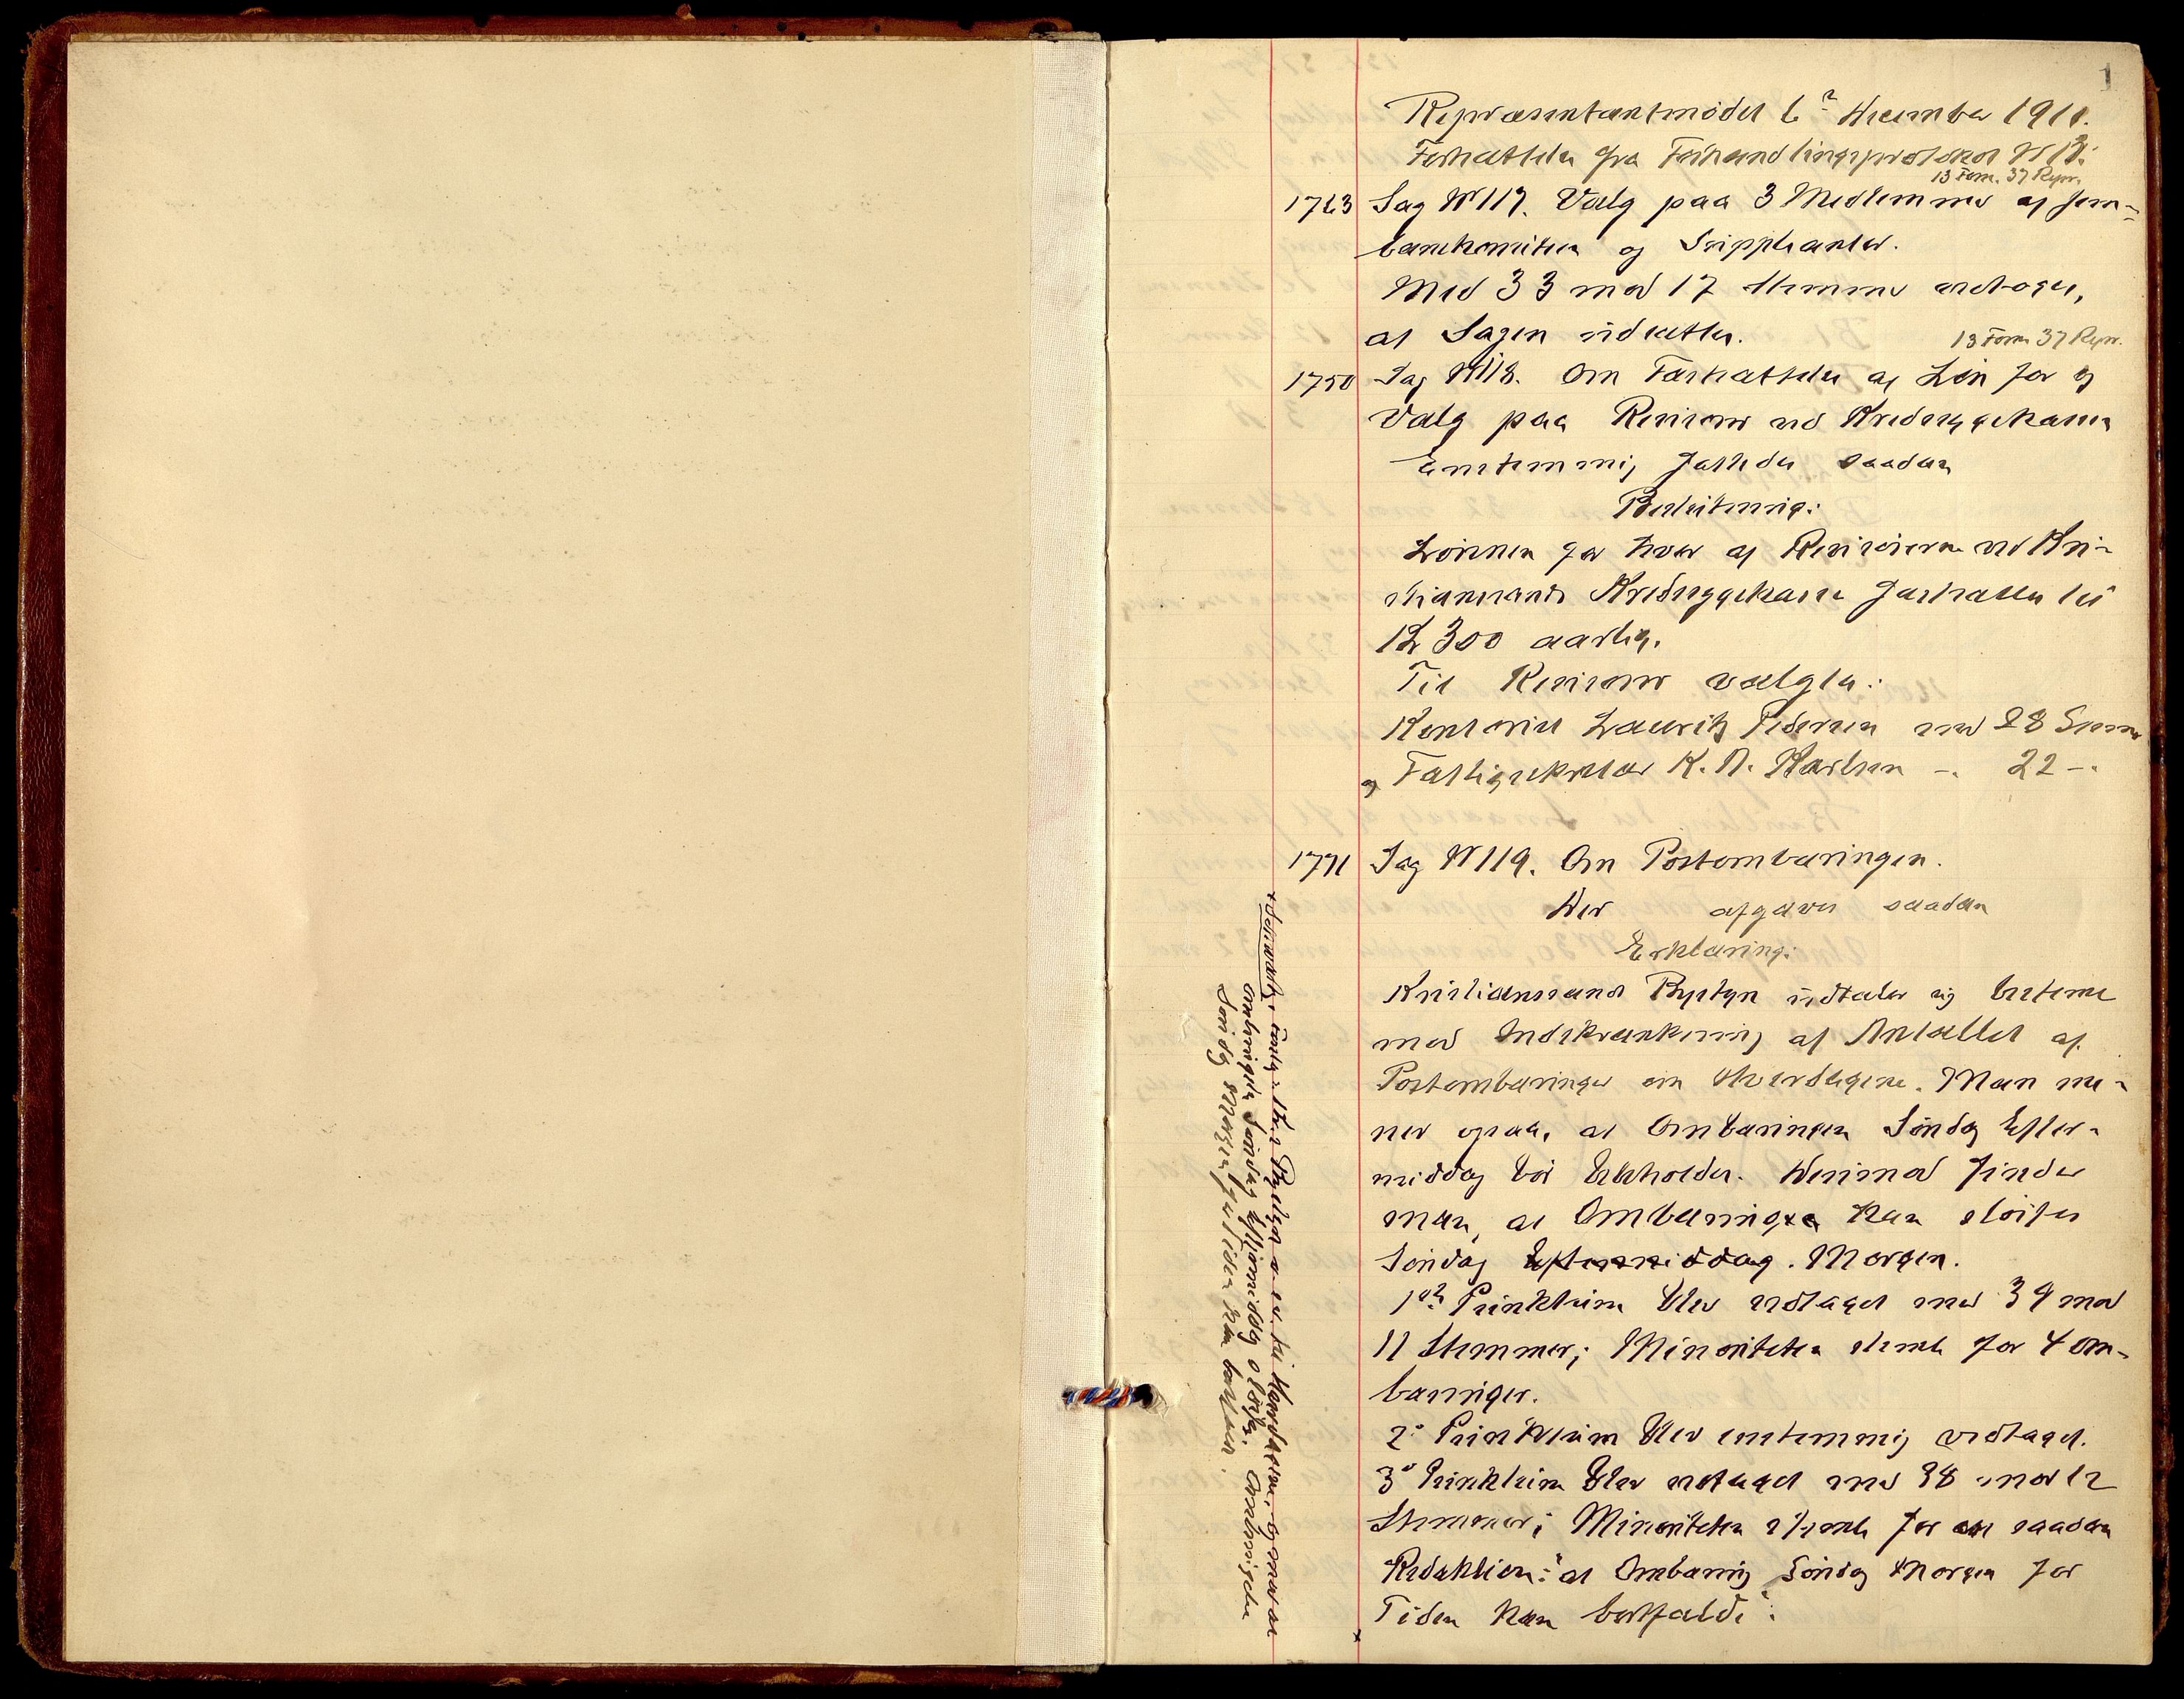 1
Repræsentantmødet 6te December 1911.
Fortsættelse fra Forhandlingsprotokol No 12.
13 Form. 37 Repr.
1723 Sag No 117. Valg paa 3 Medlemmer af Jern-
banekomiteen og Suppleanter.
Med 33 mod 17 Stemmer vedtoges,
at Sagen udsættes.
13 Form 37 Repr.
1750 Sag No 118. Om Fastsættelse af Løn for og
Valg paa Revisorer ved Kredsygekassen
Enstemmig fattedes saadan
Beslutning:
Lønnen for hver af Revisorerne ved Kri-
stianssands Kredssygekasse fastsættes til
Kr 300 aarlig.
Til Revisorer valgtes:
Kontorist Lauritz Pedersen med 28 Stemmer
og Fattigsekretær K. A. Karlsen -"- 22 -"-
1771 Sag No 119. Om Postombæringen.
Der afgaves saadan
Erklæring:
Kristianssands Bystyre udtaler sig bestemt
mod Indskrænkning af Antallet af
Postombæringer om Hverdagene. Man me-
ner ogsaa, at Ombæringen Søndag Efter-
middag bør bibeholdes. Derimod finder
man, at Ombæringen kan sløifes
Søndag Eftermiddag. Morgen.
1ste Punktum blev vedtaget med 39 mod
11 Stemmer; Minoriteten stemte for 4 om-
bæringer.
2det Punktum blev enstemmig vedtaget.
3de Punktum blev vedtaget med 38 mod 12
Stemmer; Minoriteten stemte for en saadan
Redaktion: "at Ombæring Søndag Morgen for
Tiden kan bortfalde".
Søndag Eftermiddag sløifes. Ombringelsen
Søndag Morgen for Tiden kan bortfalde.